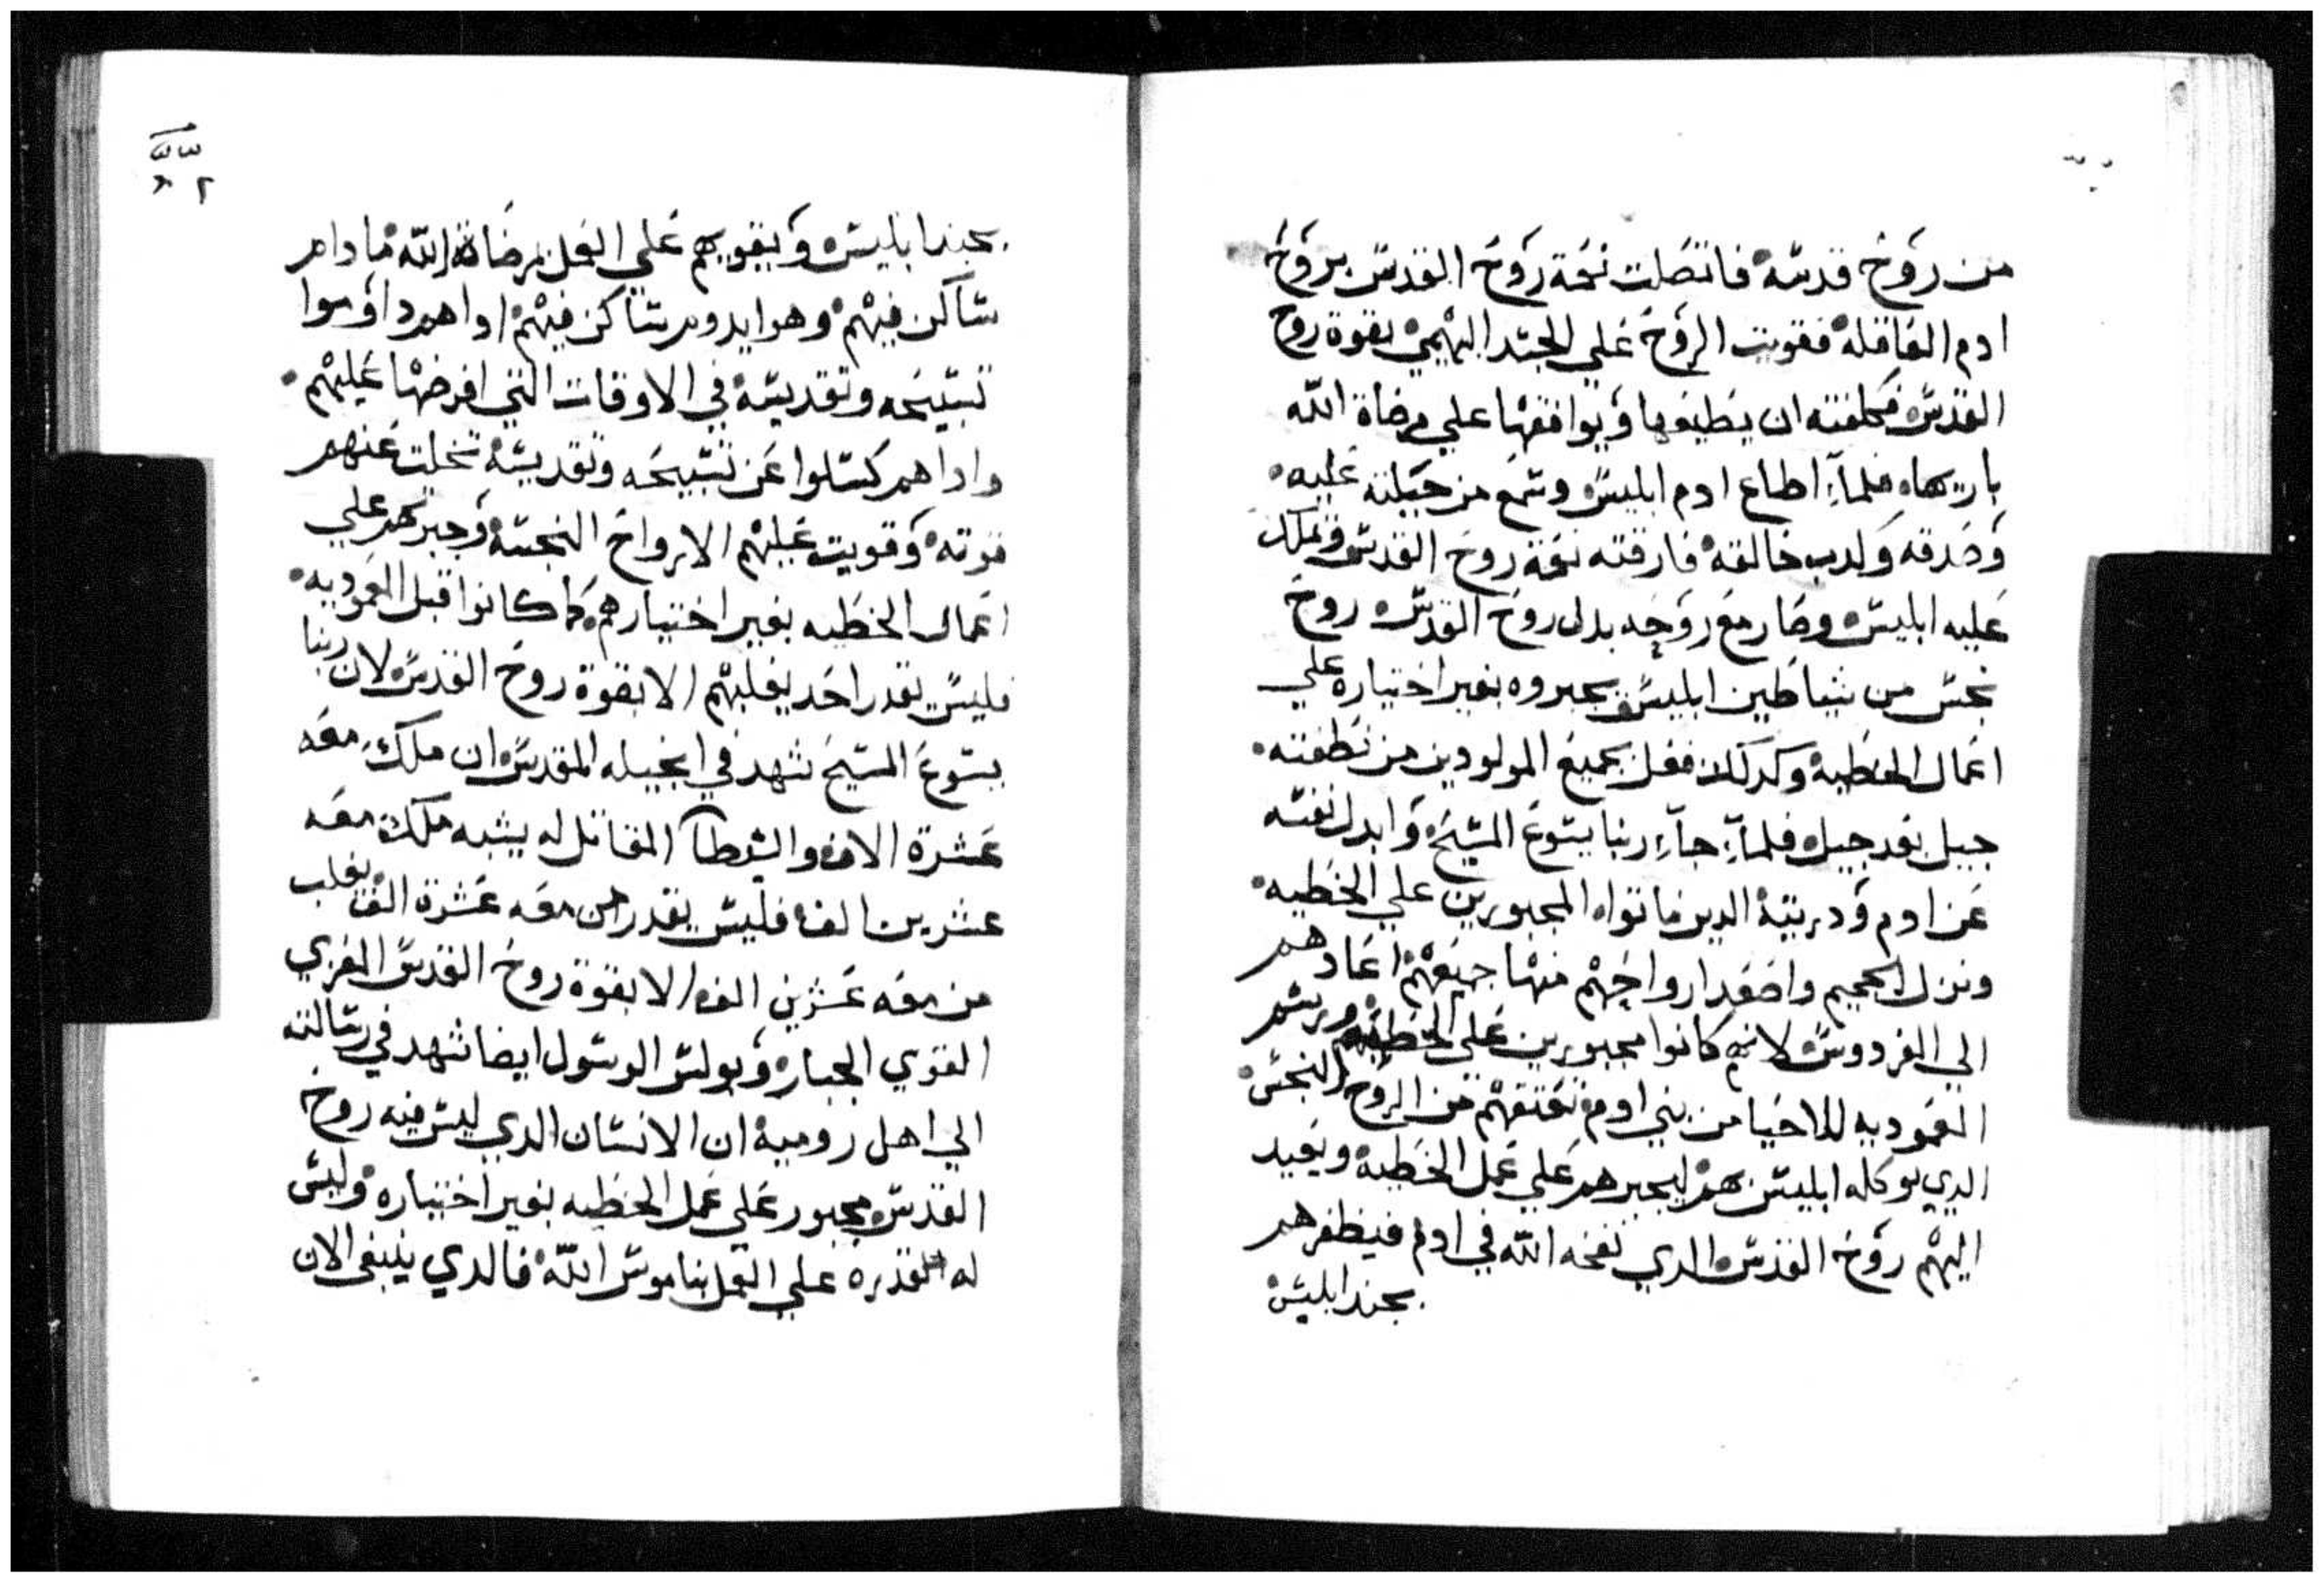 من روح قدسه فاتصلت نعمة روح القدس بروح
ادم العاقله فقويت الروح علي الجسد البهيمي بقوة روح
القدس فكلفته ان يطيعها ويوافقها علي مرضاة الله
باريها فلما اطاع ادم ابليس وسمع من حيلته عليه
وصدقه وكدب خالقه فارقته نعمة روح القدس وتملك
عليه ابليس وصار مع روحه بدل روح القدس روح
نجس من شياطين ابليس يجبروه بغير اختياره علي
اعمال الخطيه وكدلك فعل بجميع المولودين من نطفته
جيل بعد جيل فلما جاء ربنا يسوع المسيح وابدل نفسه
عن ادم ودريته الدين ماتوا المجبورين علي الخطيه
ونزل الجحيم واصعد ارواحهم منها جميعهم اعادهم
الي الفردوس لانهم كانوا مجبورين علي الخطيه ورسم
المعموديه للاحيا من بني ادم تعتقهم من الروح النجس
الدي يوكله ابليس بهم ليجبرهم علي عمل الخطيه ويعيد
اليهم روح القدس الدي نفخه الله في ادم فيظفرهم
بجند ابليس
٣٣
٢
بجند ابليس ويقويهم علي العمل بمرضاة الله ما دام
ساكن فيهم وهو ايدوم ساكن فيهم ادا هم داوموا
تسبيحه وتقديسه في الاوقات التي افرضها عليهم
وادا هم كسلوا عن تسبيحه وتقديسه تخلت عنهم
قوته وقويت عليهم الارواح النجسه وجبرتهم علي
اعمال الخطيه بغير اختيارهم كما كانوا قبل المعموديه
فليس يقدر احد يغلبهم الا بقوة روح القدس لان ربنا
يسوع المسيح شهد في انجيله المقدس ان ملك معه
عشرة الاف والشيطان المقاتل له يشبه ملك معه
عشرين الف فليس يقدر من معه عشرة الف يغلب
من معه عشرين الف الا بقوة روح القدس المعزي
القوي الجبار وبولس الرسول ايضا شهد في رسالته
الي اهل روميه ان الانسان الدي ليس فيه روح
القدس مجبور علي عمل الخطيه بغير اختياره وليس
له القدره علي العمل بناموس الله فالدي ينبغي الان